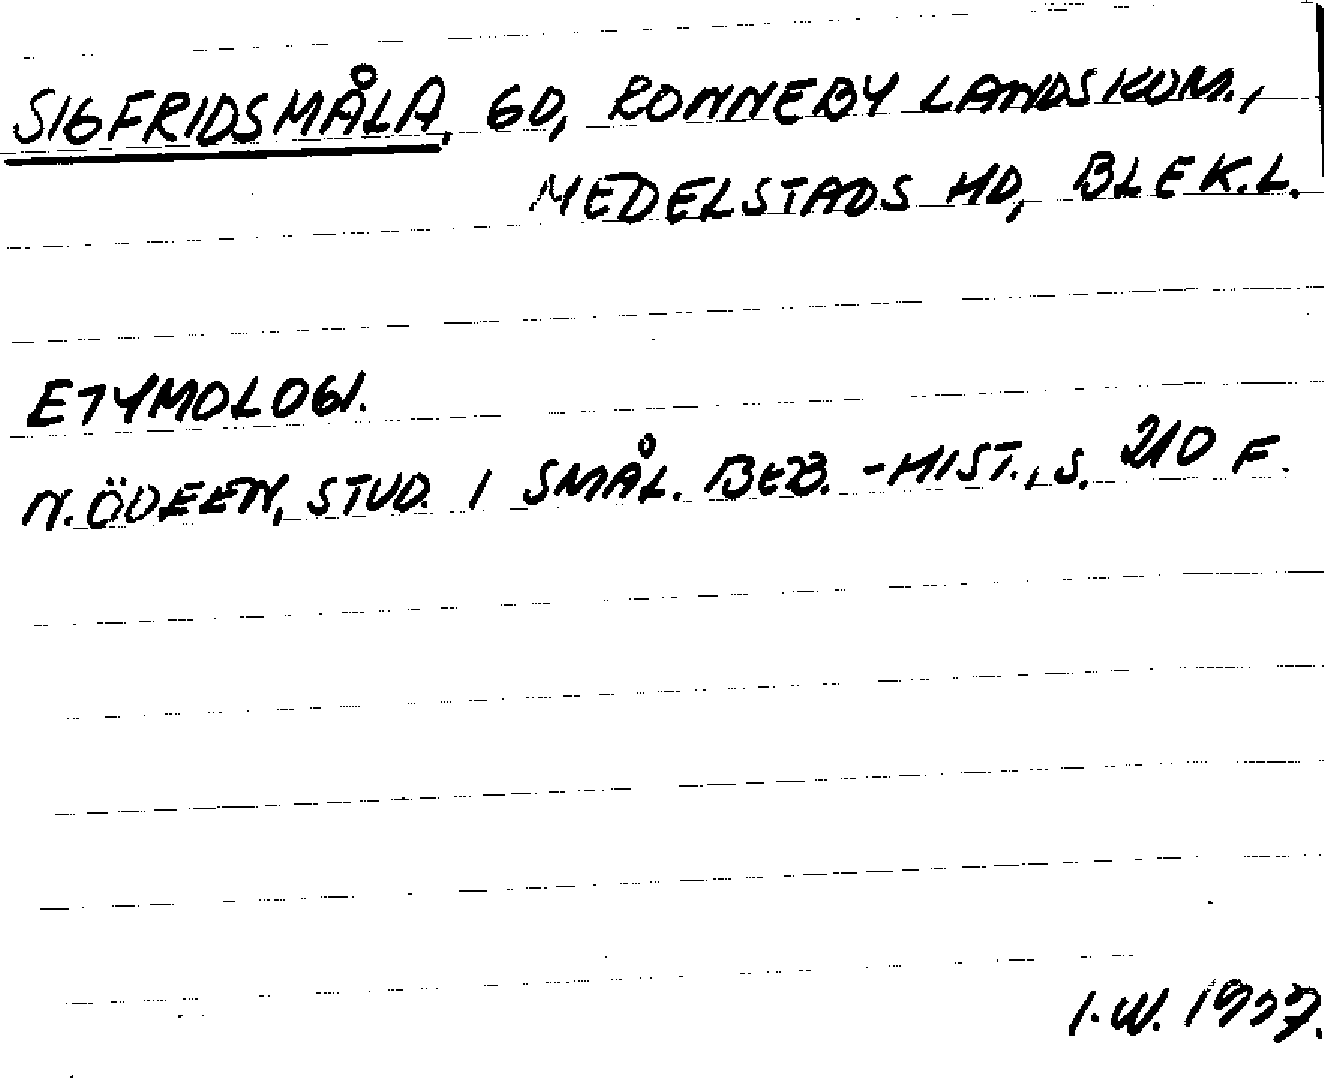 SIGFRIDSMÅLA, GD, RONNEBY LANDSKOM.,
MEDELSTADS HD, BLEK.L.
ETYMOLOGI.
N. ÖDEEN, STUD. I SMÅL. BEB.-HIST., S. 210 F.
I.W.